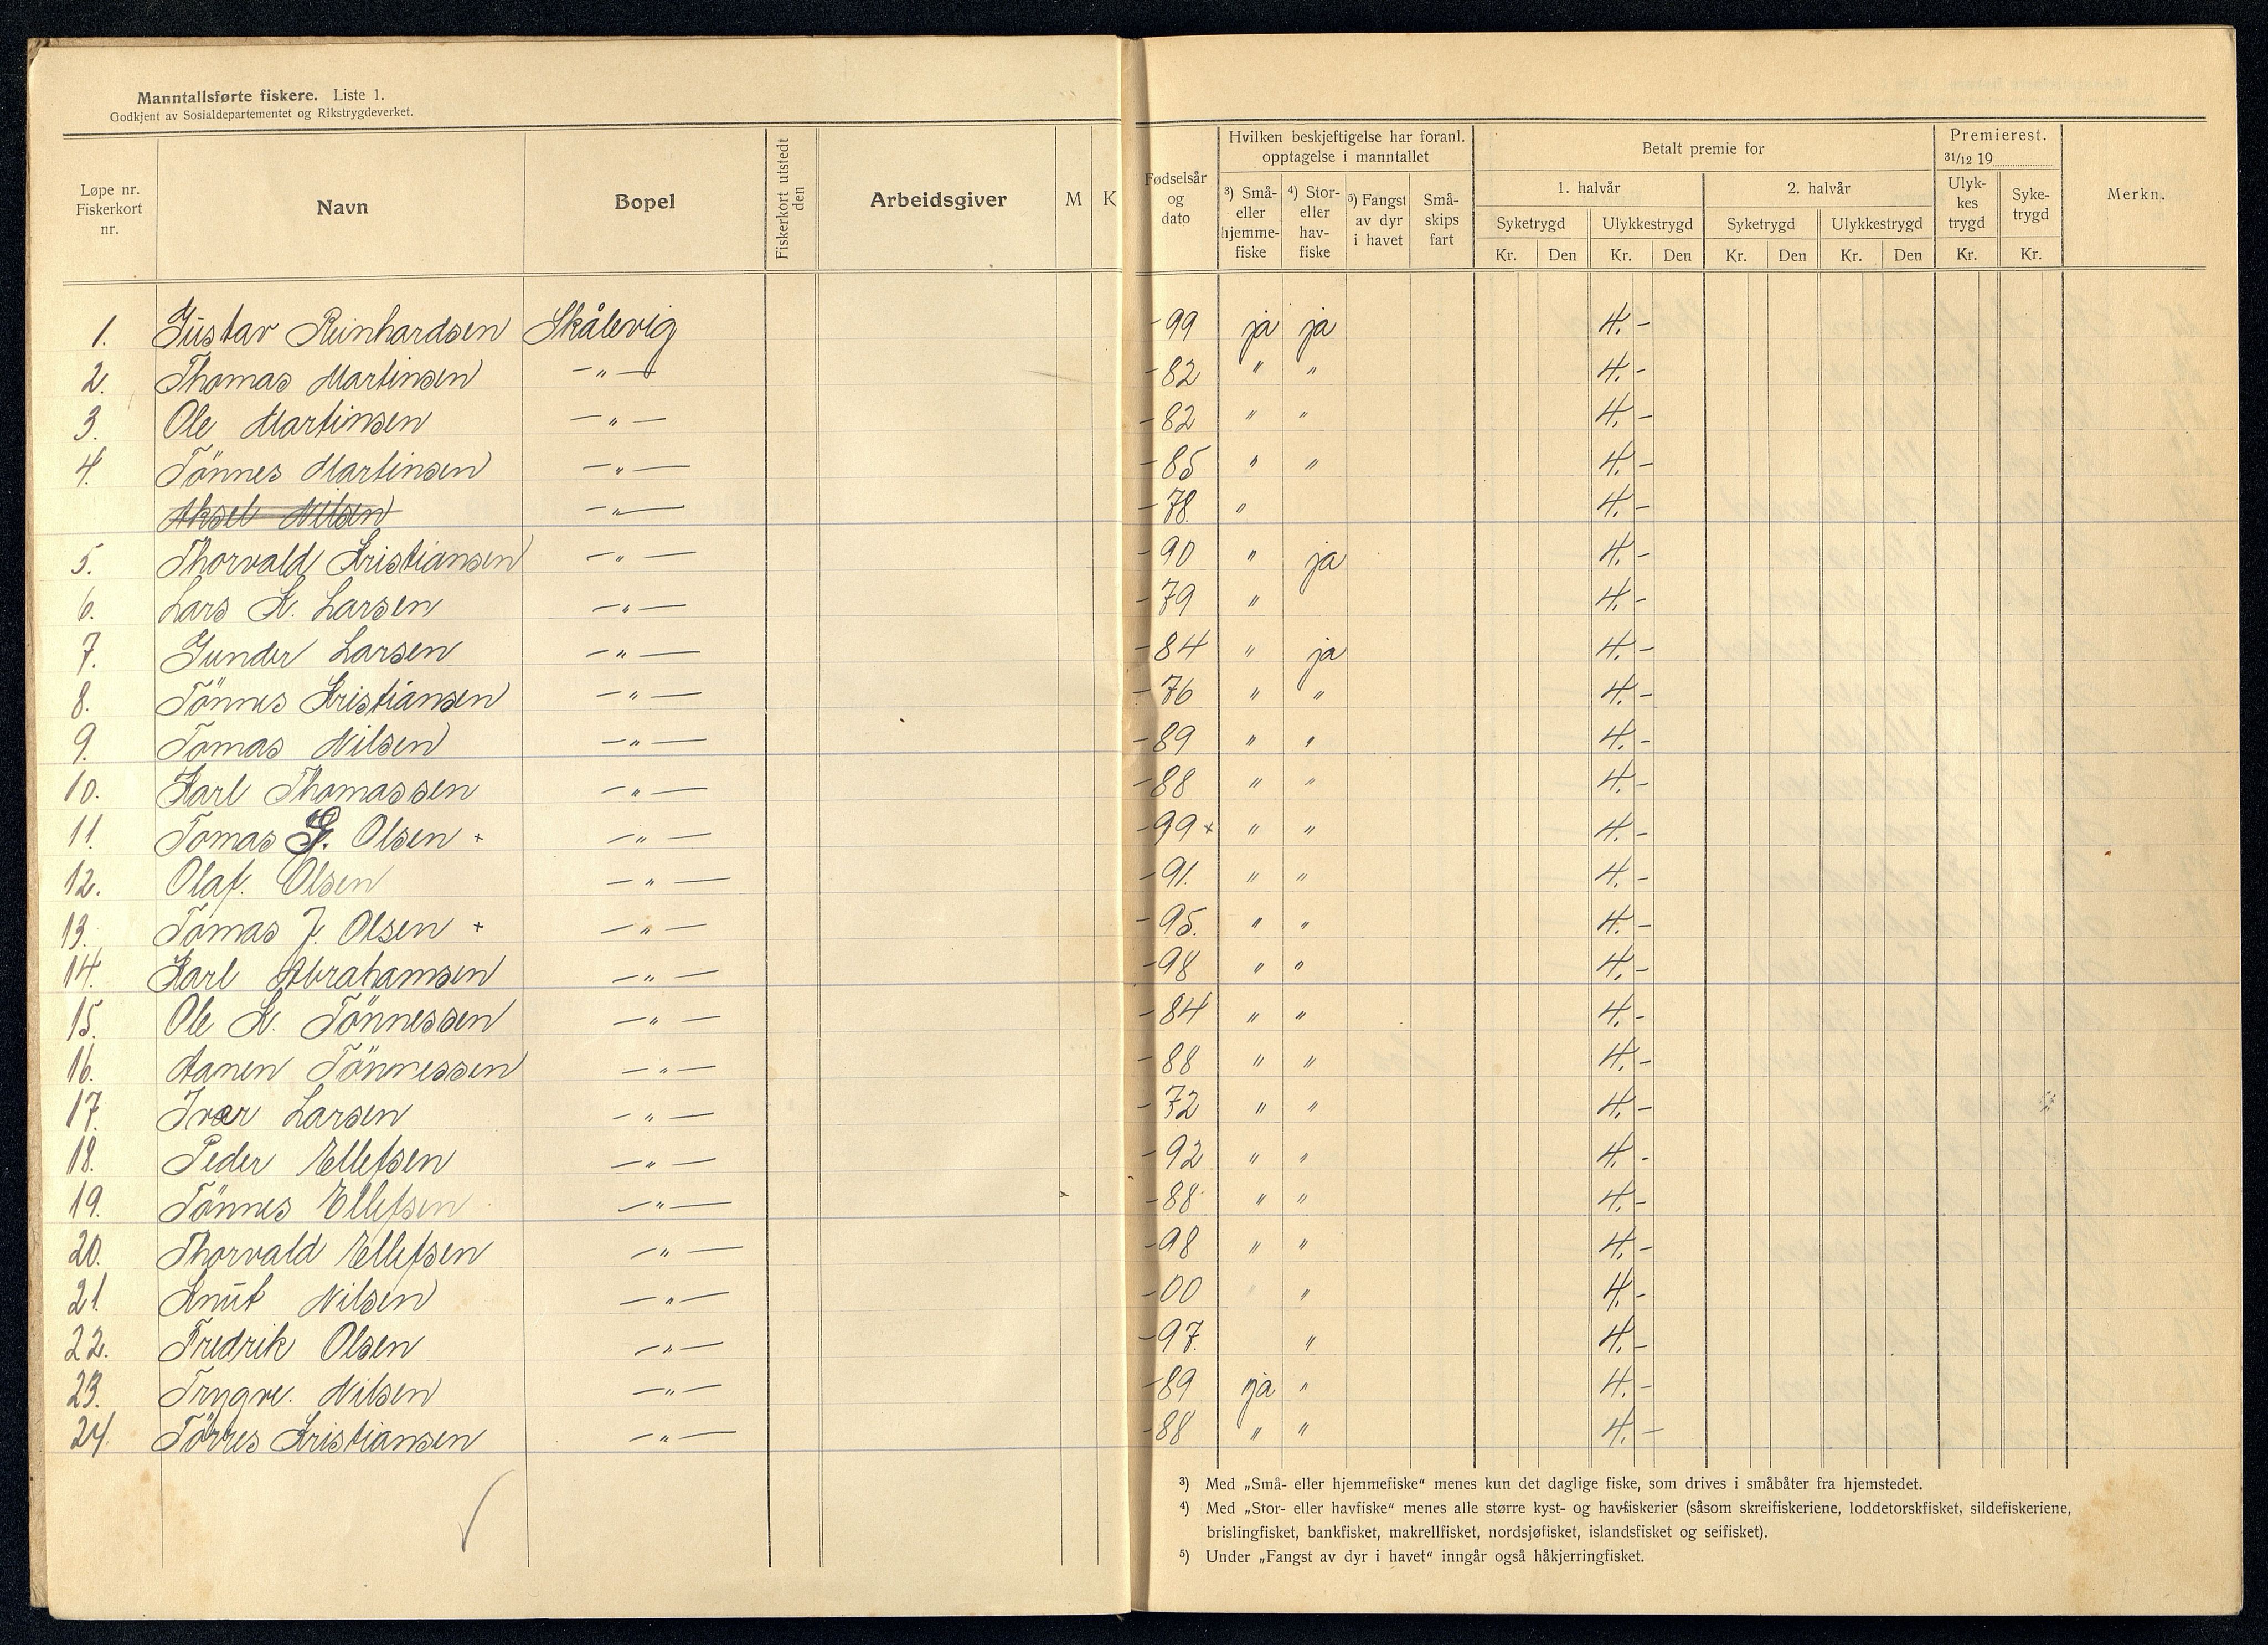 Manntallsførte fiskere. Liste 1.
Godkjent av Sosialdepartementet og Rikstrygdeverket.
Løpe nr. Fiskerkort nr. Navn Bopel Fiskerkort utstedt den Arbeidsgiver M K Fødselsår og dato
Hvilken beskjeftigelse har foranl. opptagelse i manntallet
3) Små- eller hjemme-fiske 4) Stor- eller hav-fiske 5) Fangst av dyr i havet Små-skips fart
Betalt premie for
1. halvår 2. halvår
Syketrygd Ulykkestrygd Syketrygd Ulykkestrygd
Kr. Den Kr. Den Kr. Den Kr. Den
Premierest. 31/12 19
Ulyk-kes trygd Syke-trygd
Kr. Kr.
Merkn.
1. Gustav Reinhardsen Skålevig -99 ja ja 4.-
2. Thomas Martinsen -"- -82 " " 4.-
3. Ole Martinsen -"- -82 " " 4.-
4. Tönnes Martinsen -"- -85 " " 4.-
Aksel Nilsen -"- -78. " 4.-
5. Thorvald Kristiansen -"- -90 " ja 4.-
6. Lars K. Larsen -"- -79 " 4.-
7. Gunder Larsen -"- -84 " ja 4.-
8. Tönnes Kristiansen -"- -76 " " 4.-
9. Tomas Nilsen -"- -89 " " 4.-
10. Karl Thomassen -"- -88 " " 4.-
11. Tomas G. Olsen + -"- -99 + " " 4.-
12. Olaf. Olsen -"- -91. " " 4.-
13. Tomas J. Olsen + -"- -95. " " 4.-
14. Karl Abrahamsen -"- -98 " " 4.-
15. Ole K. Tönnessen -"- -84 " " 4.-
16. Aanen Tönnessen -"- -88 " " 4.-
17. Ivar Larsen -"- -72 " " 4.-
18. Peder Ellefsen -"- -92 " " 4.-
19. Tönnes Ellefsen -"- -88 " " 4.-
20. Thorvald Ellefsen -"- -98 " " 4.-
21. Knut Nilsen -"- -00 " 4.-
22. Fredrik Olsen -"- -97. " 4.-
23. Trygve. Nilsen -"- -89 ja " 4.-
24. Törres Kristiansen -"- -88 " " 4.-
3) Med „Små- eller hjemmefiske“ menes kun det daglige fiske, som drives i småbåter fra hjemstedet.
4) Med „Stor- eller havfiske“ menes alle større kyst- og havfiskerier (såsom skreifiskeriene, loddetorskfisket, sildefiskeriene,
brislingfisket, bankfisket, makrellfisket, nordsjøfisket, islandsfisket og seifisket).
5) Under „Fangst av dyr i havet“ inngår også håkjerringfisket.